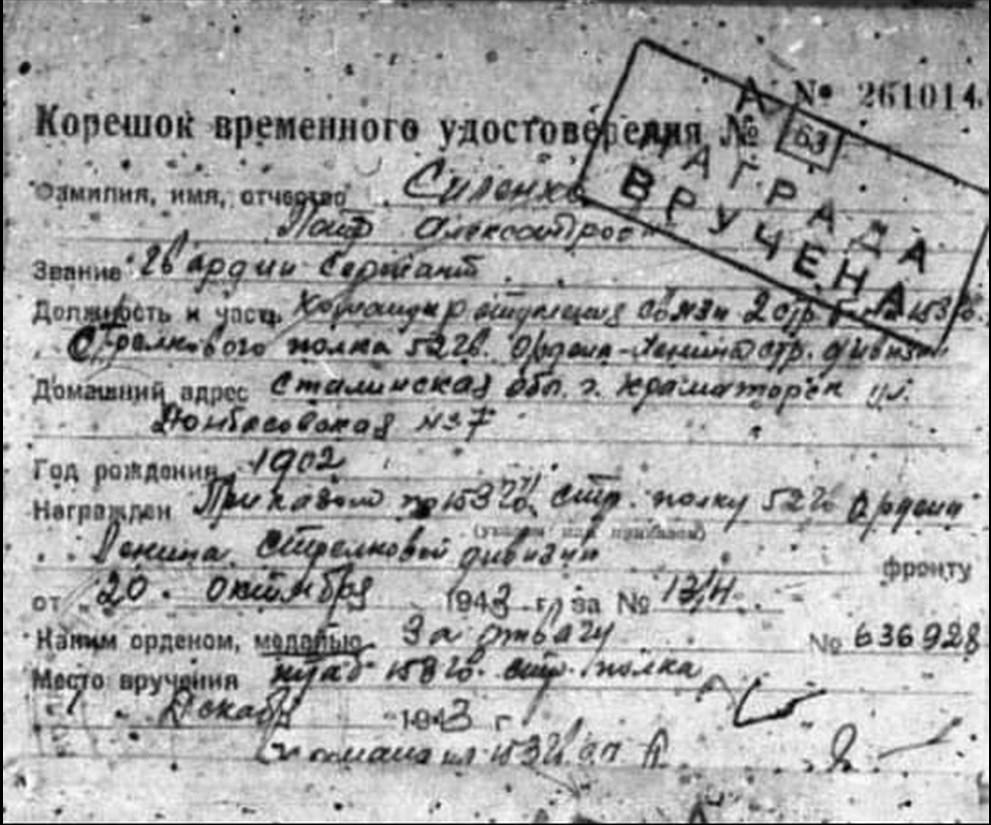 А № 261014
Корешок временного удостоверения № 63
НАГРАДА
ВРУЧЕНА
Фамилия, имя, отчество
Александрович
Звание Гвардии Сержант
Должность и часть Командир отделения связи 2 стр. 153 гв.
Стрелкового полка 52 гв. Ордена Ленина стр. дивизии
Домашний адрес Сталинская обл. г. Краматорск ул.
Донбасовская №37
Год рождения 1902
Награжден Приказом по 153 гв. стр. полку 52 гв Ордена
(указом или приказом)
Ленина стрелковой дивизии фронту
от „20. октября 1943 г. за № 13/Н.
Каким орденом, медалью За отвагу № 636928
Место вручения штаб 153 гв. стр. полка
Декабря 1943 г
153 гв сп